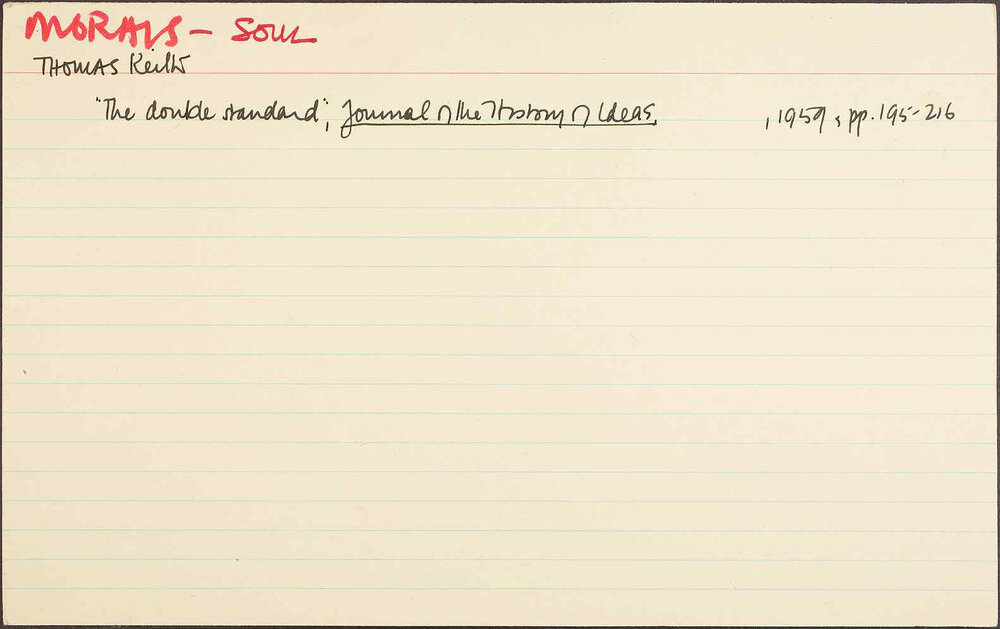 MORALS – SOUL
THOMAS Keith
"The double standard", Journal of the History of Ideas, , 1959, pp. 195-216